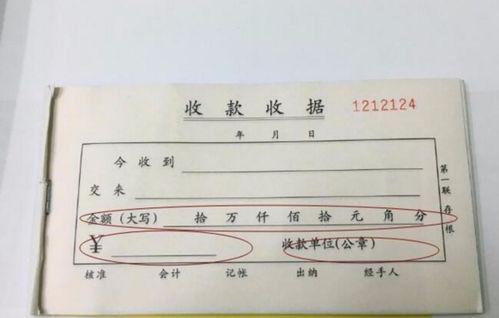 收款收据 1212124
年 月 日
今收到
交来
金额(大写) 拾 万 仟 佰 拾 元 角 分
¥ 收款单位(公章)
核准 会计 记帐 出纳 经手人
第一联存根